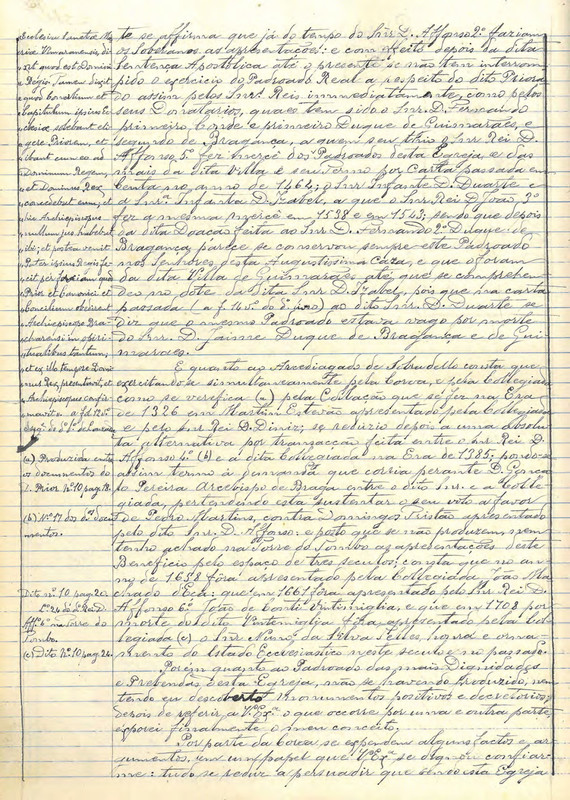 te se affirma que já do tempo do Snr. D. Affonso 2º faziam
os Soberanos as apresentações: e com effeito depois da dita
Sentença Apostolica até o presente se não tem interrom
pido o exercicio do Padroado Real a respeito do dito Priora
do assim pelos Snrs. Reis immediatamente, como pelos
seus Donatarios, quaes tem sido o Snr. D. Fernando
primeiro Conde e primeiro Duque de Guimarães, e
segundo de Bragança, a quem seu thio o Snr. Rei D.
Affonso 5º fez mercê dos Padroados desta Egreja, e das
mais da dita Villa e seu termo por Carta passada em
no anno de 1464; o Snr. Infante D. Duarte e
a Snrª Infanta D. Izabel, a que o Snr. Rei D. João 3º
fez a mesma mercê em 1538 e em 1543; sendo que depois
da dita Doação feita ao Snr. D. Fernando 2º Duque de
Bragança, parece se conservou sempre este Padroado
nos Senhores desta Augustissima Caza, e que o foram
da dita Villa de Guimarães até que se comprehen
deu no dote da dita Snrª D. Izabel, pois que na carta
passada ao dito Snr. D. Duarte se
diz que o mesmo Padroado estava vago por morte
do Snr. D. Jaime Duque de Bragança e de Gui
marães.
E quanto ao Arcediagado de Sobradello consta que
exercitando-se simultaneamente pela Coroa, e pela Collegiada
como se verefica (a) pela Collação que se fez na Era
de 1326 em Martim Estevão apresentado pela Collegiada
e pelo Snr. Rei D. Diniz; se reduzio depois a uma absolu
ta alternativa por transacção feita entre o Snr. Rei D.
Affonso 4º (b) e a dita Collegiada na Era de 1385; pondo-se
assim termo á demanda que corria perante D. Gonça
lo Pereira Arcebispo de Braga entre o dito Snr. e a Colle
giada, pertendendo esta sustentar o seu voto a favor
de Pedro Martins, contra Domingos Cristão apresentado
pelo dito Snr. D. Affonso: e posto que se não produzem, nem
tenho achado na Torre do Tombo as apresentações deste
Beneficio pelo espaço de tres seculos; consta que no an
no de 1658 fôra apresentado pela Collegiada João Ma
chado d'Eça; que em 1661 fôra apresentado pelo Snr. Rei D.
Affonso 6º João de Conti Vintimiglia, e que em 1708 por
morte do dito Vintemiglia fôra apresentado pela Col
legiada (c) o Snr. Nuno da Silva Telles, honra e orna
mento do Estado Ecclesiastico neste seculo e no passado.
Porém quanto ao Padroado das mais Dignidades
e Prebendas desta Egreja, não se havendo produzido, nem
tendo eu descoberto monumentos positivos e decretorios;
depois de referir a V. Exª o que occorre por uma e outra parte,
exporei finalmente o meu conceito.
Por parte da Coroa se expendem alguns factos e ar
gumentos, em um papel que V. Exª se dignou confiar-
me: tudo se reduz a persuadir que sendo esta Egreja
Ecclesiam Sanctae Ma
riae Vimaranensis di
xit quod est Domini
Regis, tamen dixit
quod Conventum et
Capitulum ipsius Ec
clesiae solebant eli
gere Priorem, et
dabant eum ad
Dominum Regem,
et Dominus Rex
concedebat eum; et
Archiepiscopus
nullum jus habebat
ibi; et postea venit
Prior et Canonici et
Conventum obedirent
Archiepiscopo Bra
charensi in spiri
tualibus tantum,
et ex illo tempore Domi
nus Rex presentavit, et
Archiepiscopus confir
mavit
(a) Produzida entre
os documentos do
D. Prior nº 10 pag. 18.
(b) Nº 17 dos ditos docu
mentos.
Dito nº 10 pag. 20
Affº 4º na Torre do
Tombo.
(c) Dito nº 10 pag. 24.